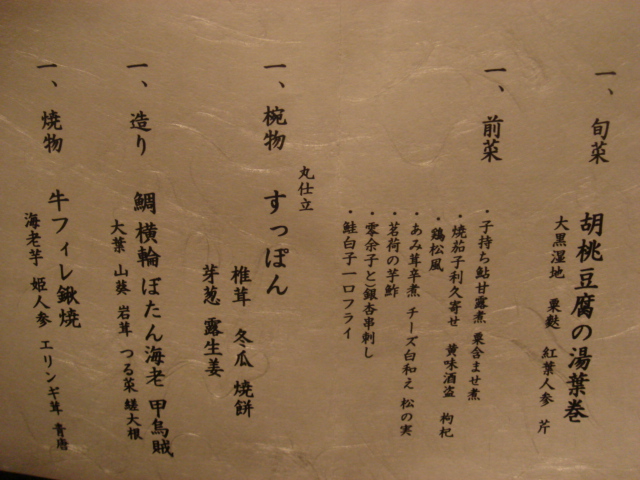 一、旬菜 胡桃豆腐の湯葉巻
大黒湿地 粟麩 紅葉人参 芹
一、前菜
・子持ち鮎甘露煮 栗含ませ煮
・焼茄子利久寄せ 黄味酒盗 枸杞
・鶏松風
・あみ茸辛煮 チーズ白和え 松の実
・茗荷の芋鮓
・零余子と銀杏串刺し
・鮭白子一口フライ
丸仕立
一、椀物 すっぽん
椎茸 冬瓜 焼餅
芽葱 露生姜
一、造り 鯛 横輪 ぼたん海老 甲烏賊
大葉 山葵 岩茸 つる菜 縒大根
一、焼物 牛フィレ鍬焼
海老芋 姫人参 エリンギ茸 青唐